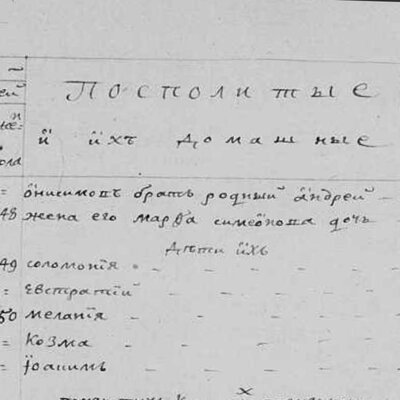 Посполитые
ей
й ихъ домашные
ола
= Онисимовъ братъ родный Андрей -
48 жена его марѳа симеонова дочь
дѣти ихъ
49 соломонія - - - - - -
= Евстратій - - - - - -
50 меланія - - - - - -
= Козма - - - - - -
= Іоакимъ - - - - - -